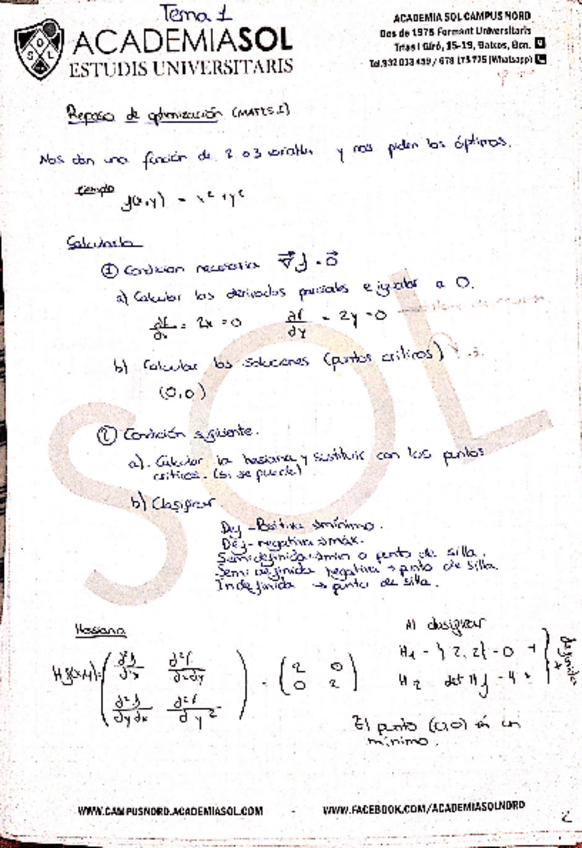 Tema 1
ACADEMIASOL
ESTUDIS UNIVERSITARIS
ACADEMIA SOL CAMPUS NORD
Des de 1975 Formant Universitaris
Trias i Giró, 15-19, Baixos, Bcn.
Repaso de optimización (MATES I)
Nos dan una función de 2 o 3 variables y nos piden los óptimos.
ejemplo
f(x,y) = x² + y²
Calcularla
① Condición necesaria ∇f = 0
a) Calcular las derivadas parciales e igualar a 0.
∂f/∂x = 2x = 0 ∂f/∂y = 2y = 0
b) Calcular las soluciones (puntos críticos)
(0,0)
② Condición suficiente.
a). Calcular la hessiana y sustituir con los puntos
críticos. (si se puede)
b) Clasificar
Def - Positiva ⇒ mínimo.
Def - negativa ⇒ máx.
Semidefinida ⇒ min o punto de silla.
Semi definida negativa → punto de silla.
Indefinida → punto de silla.
Hessiana
Al clasificar
Hf(x,y) = (∂²f/∂²x ∂²f/∂x∂y ∂²f/∂y∂x ∂²f/∂y²) = (2 0 0 2)
H1 = {2, 2} > 0 +
H2 = det Hf = 4 +
Definida +
El punto (0,0) es un
mínimo.
WWW.CAMPUSNORD.ACADEMIASOL.COM - WWW.FACEBOOK.COM/ACADEMIASOLNORD
2